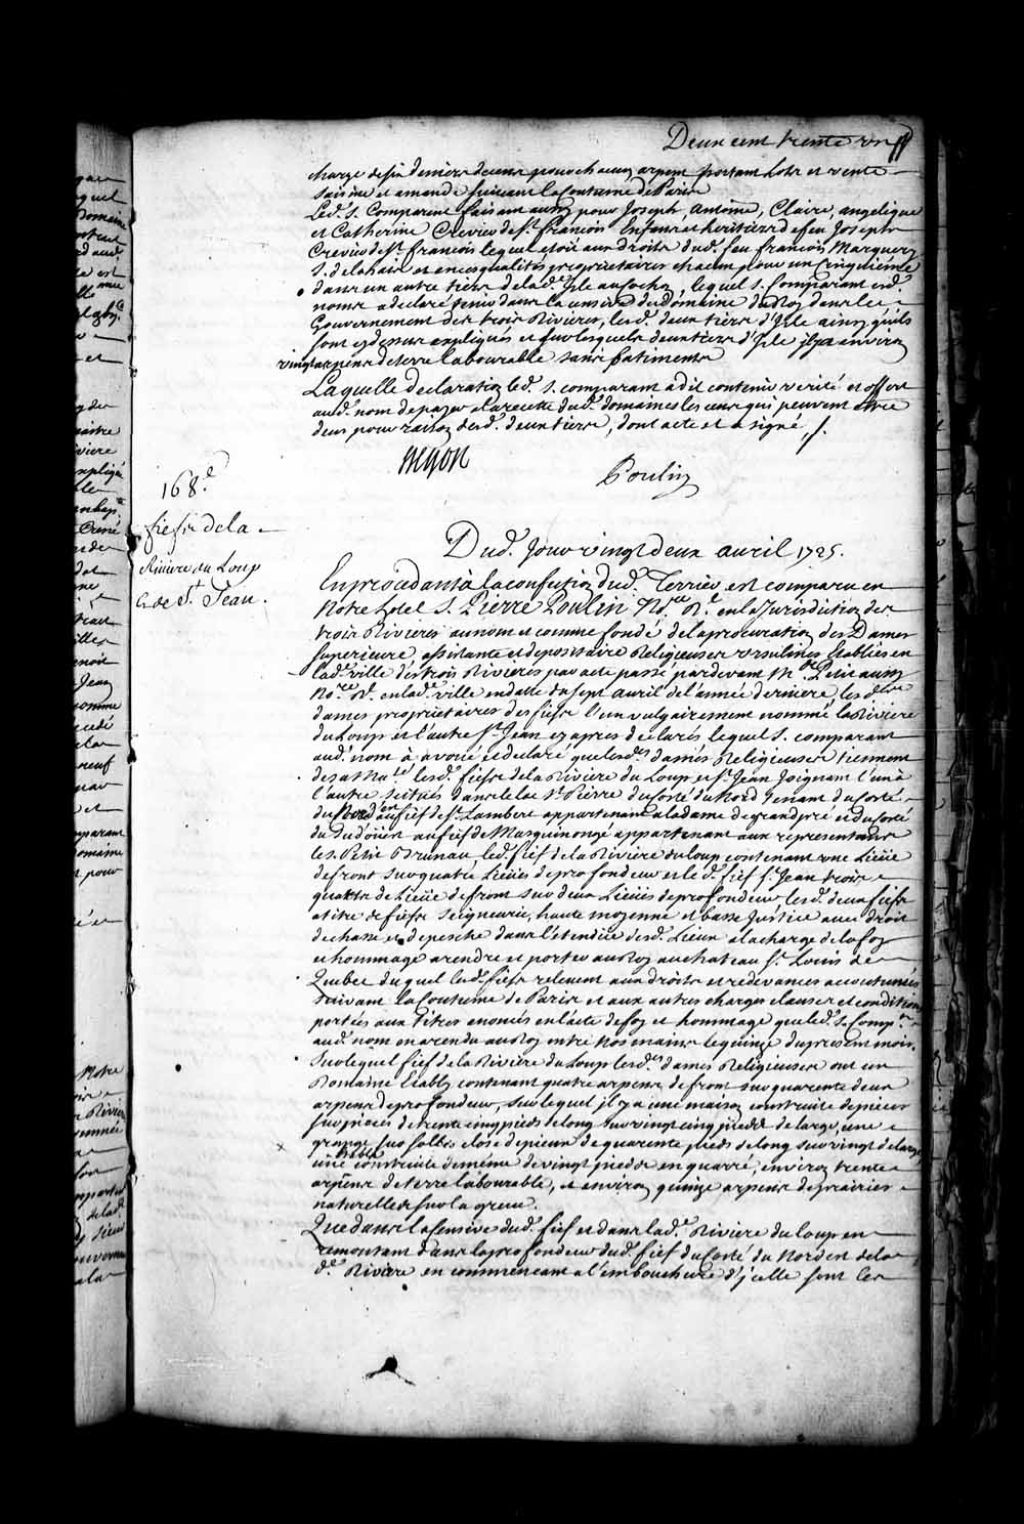 Deux cent trente un
charge de six deniers de cens pour chacun arpent portant Lots et vente
saisine et amende suivant la Coutume de Paris
Led. S. Comparant faisant aussy pour Joseph, Antoine, Claire, angelique
et Catherine Crevier de St. francois Enfans et heritiers de feu Joseph
Crevier de St. francois lequel etoit aux droits dud. feu francois Marguery
S. de la haie et en ces qualités proprietaires chacun pour un Cinquiéme
dans un autre tiers de lad.e Isle au Cochon, lequel S. Comparant esd.
noms a declaré tenir dans la censive du domaine du Roy dans le
Gouvernement des trois Rivieres, lesd. deux tiers d'Isle ainsy qu'ils
sont cy dessus expliqués et sur lesquels deux tiers d'Isle il y a environ
vingt arpens de terre labourable sans batimens
Laquelle declaration led. S. comparant a dit contenir verité et offert
aud. nom de payer a la recette dud. domaine les cens qui peuvent etre
deus pour raison desd. deux tiers, dont acte et a signé, /.
Begon
Poulin
168.e
fiefs de la
Riviere du Loup
Et de St. Jean.
Dud. Jour vingt deux avril 1725.
En procedant à la confection dud. Terrier est comparu en
Notre hotel S. Pierre Poulin No.re R.l en la Jurisdiction des
trois Rivieres au nom et comme fondé de la procuration des Dames
superieure, assistante et depositaire Religieuses ursulines Etablies en
lad. ville des trois Rivieres par acte passé pardevant M.e Petit aussy
No.re R.l en lad.e ville en datte du sept avril de l'année derniere, lesd.
dames proprietaires des fiefs l'un vulgairement nommé la Riviere
du Loup et l'autre St. Jean cy apres declarés lequel S. comparant
aud. nom à avoué et declaré que lesd.es dames Religieuses tiennent
de sa Ma.té lesd. fiefs de la Riviere du Loup et St. Jean Joignant l'un à
l'autre scitués dans le lac St. Pierre du Costé du Nord tenant du Costé
du Nord est au fief de St. Lambert appartenant a la dame de grandpré et du Costé
du Sud oüest au fief de Masquinongé appartenant aux representans
le S. Petit Bruneau led. fief de la Riviere du loup contenant une Lieüe
de front sur quatre Lieües de profondeur et le d. fief St. Jean trois
quarts de Lieüe de front sur deux Lieües de profondeur lesd. deux fiefs
a titre de fiefs Seigneurie, haute moyenne et basse Justice avec droit
de chasse et de pesche dans l'etendüe desd. Lieux a la charge de la foy
et hommage a rendre et porter au Roy au chateau St. Louis de
Quebec duquel lesd. fiefs relevent aux droits et redevances accoutumés
suivant la Coutume de Paris et aux autres charges clauses et conditions
portées aux titres enoncés en l'acte de foy et hommage que led. S. Comp.nt
aud. nom en a rendu au Roy entre nos mains le quinze du present mois.
Sur lequel fief de la Riviere du Loup lesd.es dames Religieuses ont un
Domaine Etably contenant quatre arpens de front sur quarente deux
arpens de profondeur, sur lequel il y a une maison construite de pieces
sur pieces de trente cinq pieds de long sur vingt cinq pieds de large, une
grange sur solles close de pieux de quarente pieds de long sur vingt de large
une étable construite de même de vingt pieds en quarré, environ trente
arpens de terre labourable, et environ quinze arpens de prairies
naturelles sur la greve.
Que dans la Censive dud. fief et dans lad.e Riviere du loup en
remontant dans la profondeur dud. fief du Costé du Nord est de la
d.e Riviere en commencant a l'embouchure d'jcelle sont les